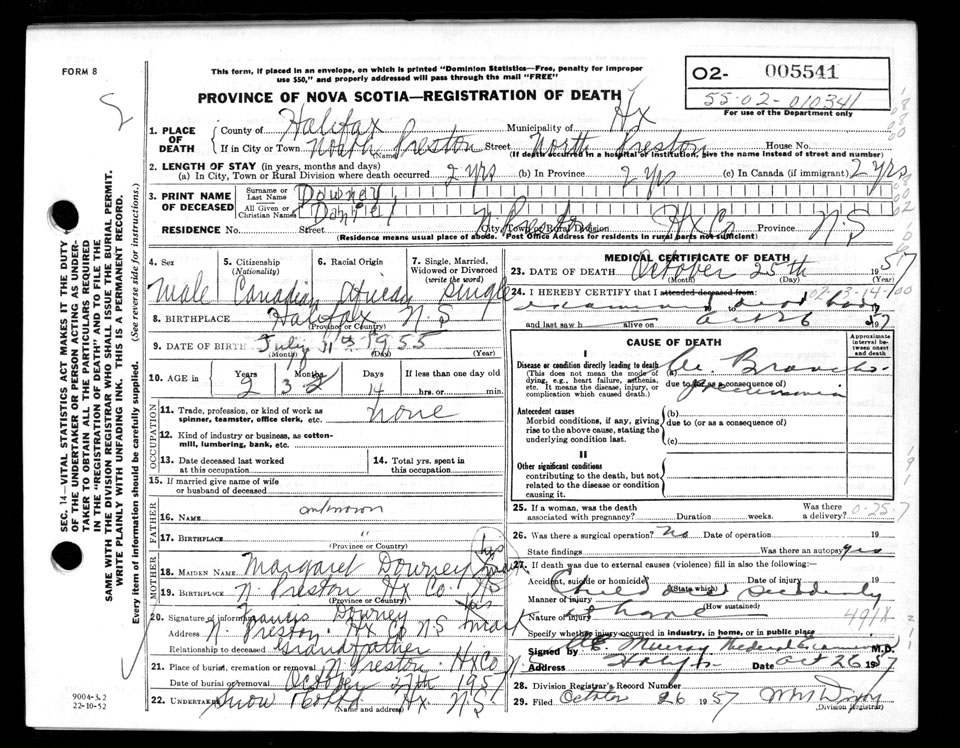 FORM 8
This form, if placed in an envelope, on which is printed "Dominion Statistics—Free, penalty for improper
use $50," and properly addressed will pass through the mail "FREE"
PROVINCE OF NOVA SCOTIA—REGISTRATION OF DEATH
02- 005541
55-02-010341
For use of the Department only
1. PLACE OF DEATH
County of Halifax Municipality of Hx
If in City or Town North Preston Street North Preston House No.
(Name) (If death occurred in a hospital or institution, give the name instead of street and number)
2. LENGTH OF STAY (in years, months and days)
(a) In City, Town or Rural Division where death occurred 2 yrs (b) In Province 2 yrs (c) In Canada (if immigrant) 2 yrs
3. PRINT NAME OF DECEASED
Surname or Last Name Downey
All Given or Christian Names Daniel
RESIDENCE No. Street N. Preston City, Town or Rural Division Hx Co Province N.S
(Residence means usual place of abode. Post Office Address for residents in rural parts not sufficient)
4. Sex Male
5. Citizenship (Nationality) Canadian
6. Racial Origin African
7. Single, Married, Widowed or Divorced (write the word) Single
8. BIRTHPLACE Halifax N S
(Province or Country)
9. DATE OF BIRTH July 11th 1955
(Month) (Day) (Year)
10. AGE in Years 2 Months 3 Days 14 If less than one day old hrs. or min.
OCCUPATION
11. Trade, profession, or kind of work as spinner, teamster, office clerk, etc. none
12. Kind of industry or business, as cotton-mill, lumbering, bank, etc.
13. Date deceased last worked at this occupation
14. Total yrs. spent in this occupation
15. If married give name of wife or husband of deceased
FATHER
16. NAME unknown
17. BIRTHPLACE "
(Province or Country)
MOTHER
18. MAIDEN NAME Margaret Downey
19. BIRTHPLACE N. Preston Hx Co. N S
(Province or Country)
20. Signature of informant Francis Downey his mark
Address N. Preston Hx Co N.S
Relationship to deceased Grandfather
21. Place of burial, cremation or removal N Preston Hx Co N.
Date of burial or removal October 27th 1957
22. Undertaker Snow Hx. N.S.
(Name and address)
MEDICAL CERTIFICATE OF DEATH
23. DATE OF DEATH October 25th 1957
(Month) (Day) (Year)
24. I HEREBY CERTIFY that I attended deceased from: 02-13-14-100
examined dead body
and last saw h alive on Oct 26 1957
CAUSE OF DEATH
Approximate interval between onset and death
I
Disease or condition directly leading to death (a) Broncho-
(This does not mean the mode of dying, e.g., heart failure, asthenia, etc. It means the disease, injury, or complication which caused death.)
due to (or as a consequence of) pneumonia
Antecedent causes (b)
Morbid conditions, if any, giving rise to the above cause, stating the underlying condition last.
due to (or as a consequence of)
(c)
II
Other significant conditions
contributing to the death, but not related to the disease or condition causing it.
25. If a woman, was the death associated with pregnancy? Duration weeks. Was there a delivery? 0-25-7
26. Was there a surgical operation? No Date of operation 19
State findings Was there an autopsy? yes
27. If death was due to external causes (violence) fill in also the following:—
Accident, suicide or homicide? (State which) Date of injury 19
Manner of injury Child died suddenly
(How sustained)
Nature of injury at home 491X
Specify whether injury occurred in industry, in home, or in public place
Signed by Murray Medical Examiner M.D.
Address Date Oct 26 1957
28. Division Registrar's Record Number
29. Filed October 26 1957
(Division Registrar)
SEC. 14—VITAL STATISTICS ACT MAKES IT THE DUTY
OF THE UNDERTAKER OR PERSON ACTING AS UNDER-
TAKER TO OBTAIN ALL THE PARTICULARS REQUIRED
IN THE "REGISTRATION OF DEATH" AND TO FILE THE
SAME WITH THE DIVISION REGISTRAR WHO SHALL ISSUE THE BURIAL PERMIT.
WRITE PLAINLY WITH UNFADING INK. THIS IS A PERMANENT RECORD.
Every item of information should be carefully supplied. (See reverse side for instructions.)
9004-3.2
22-10-52